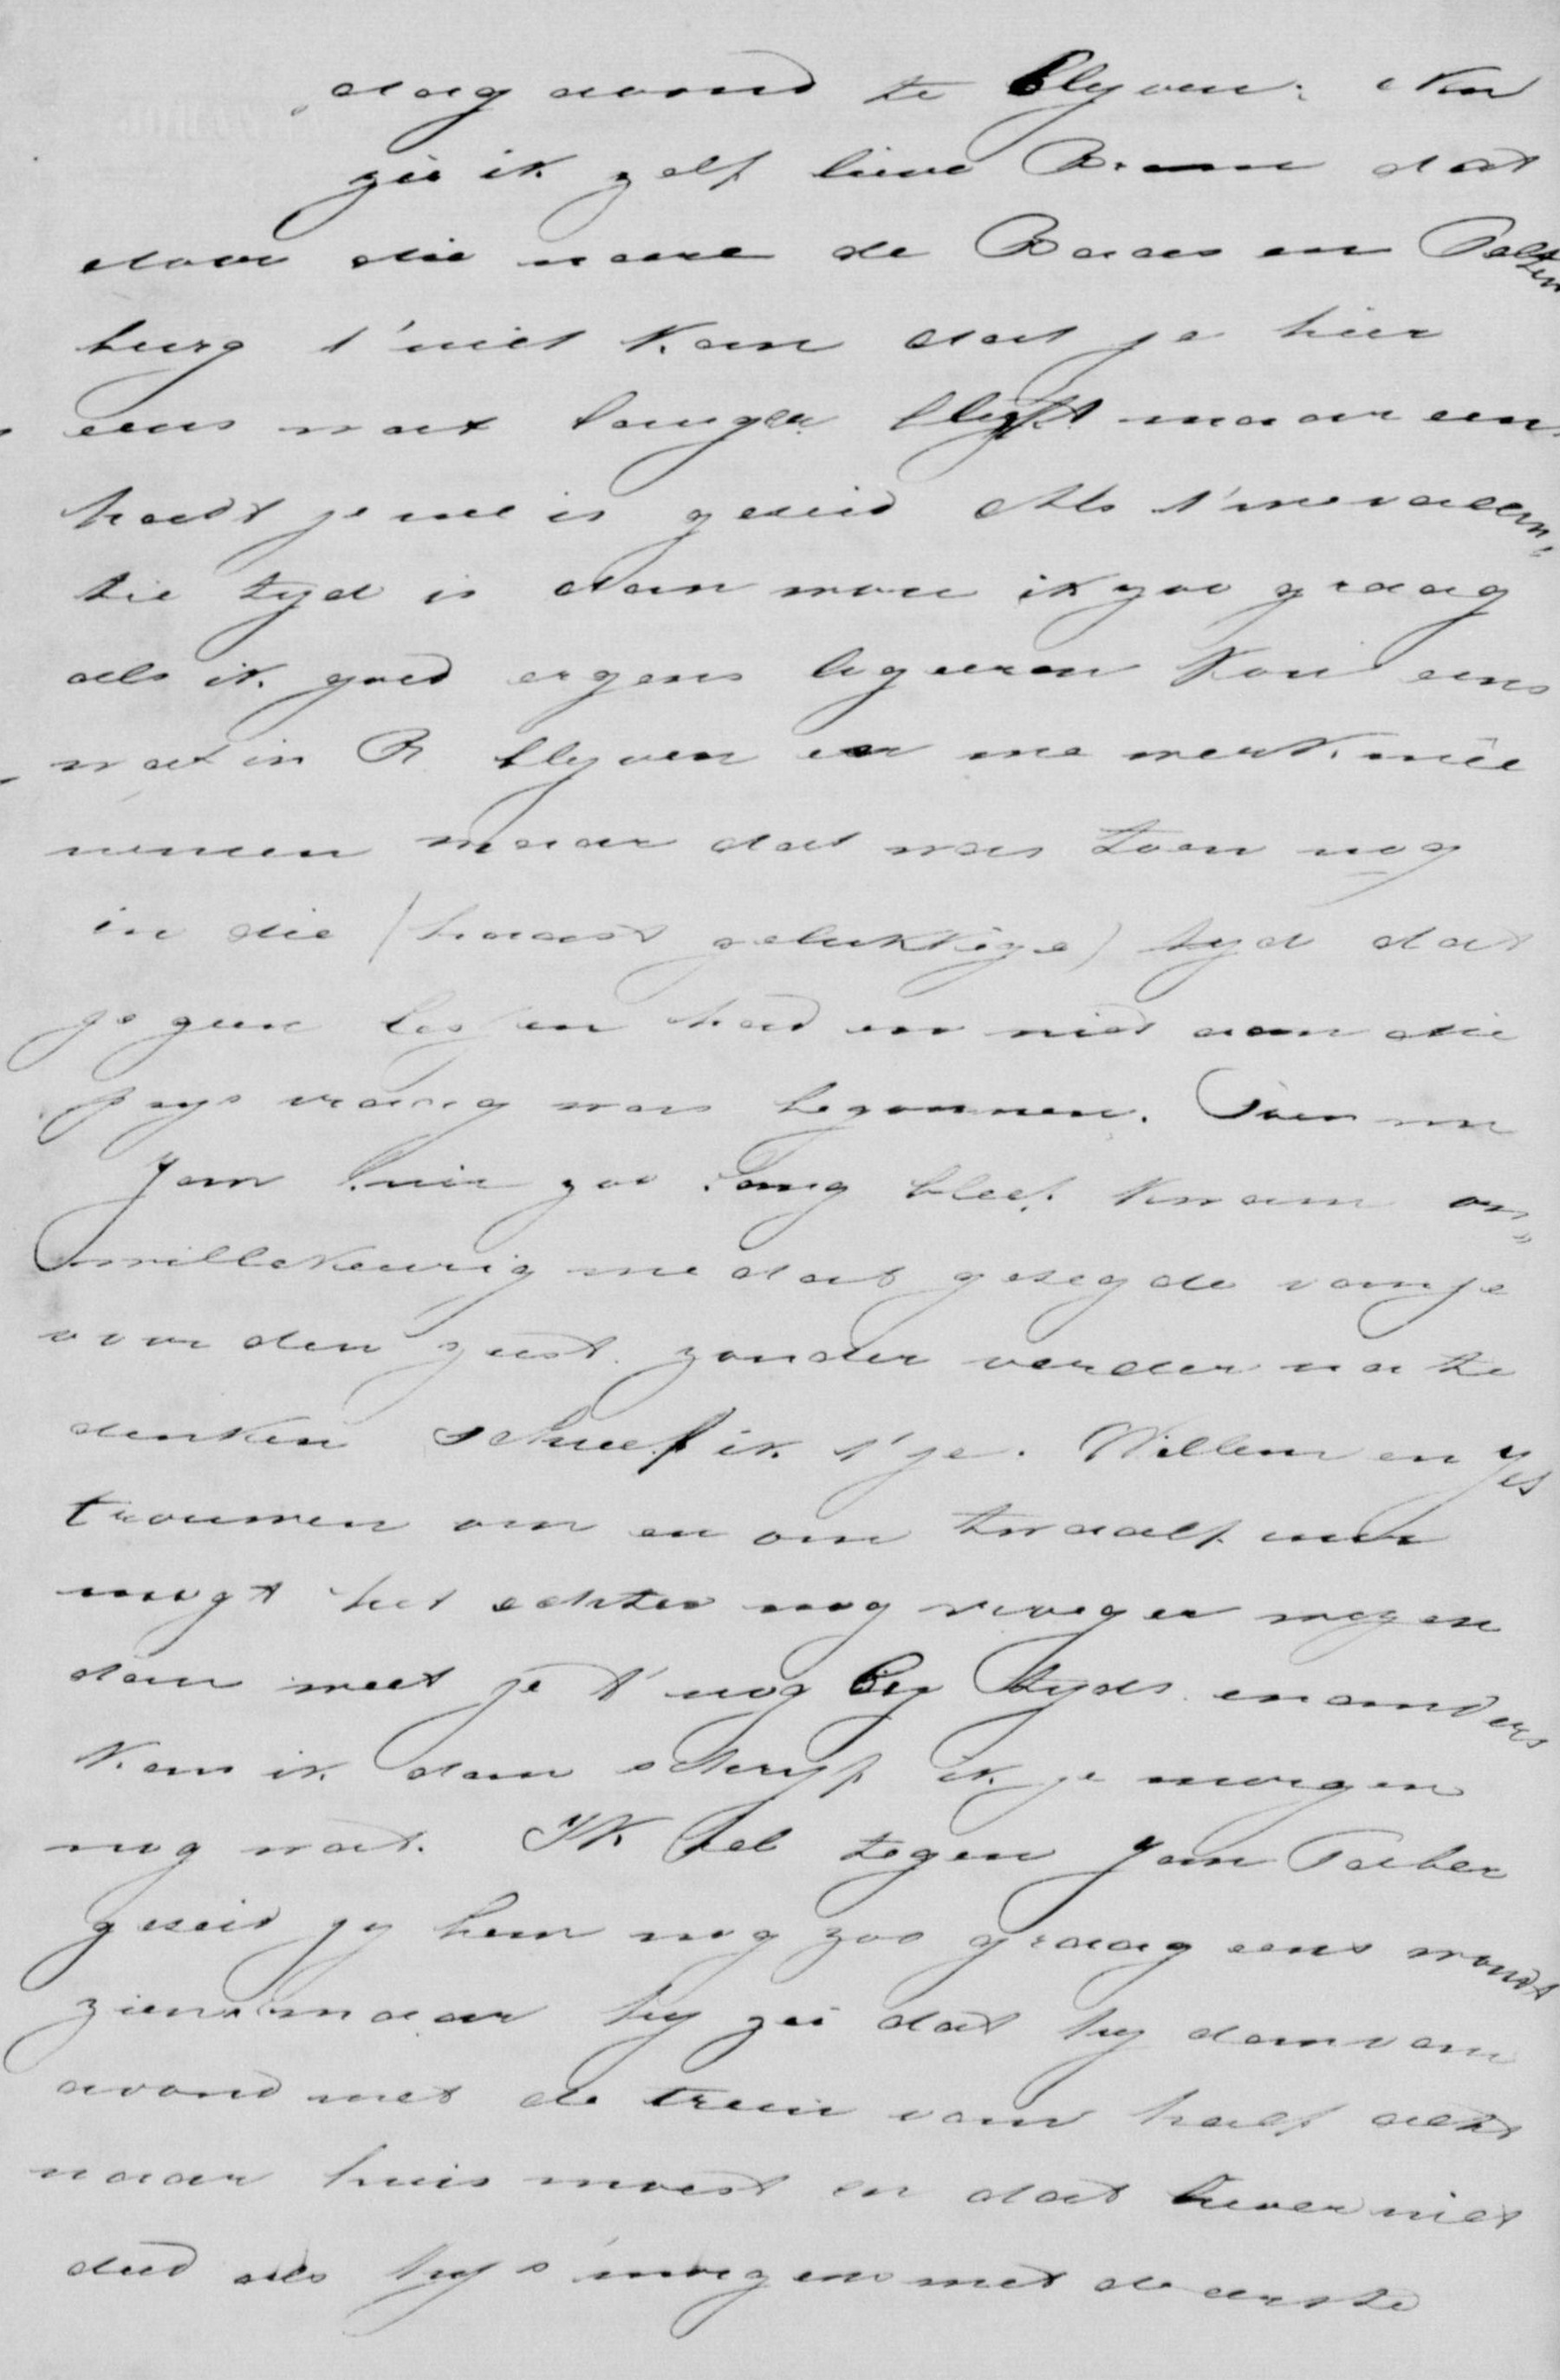 dag avond te blyven. Nu
zie ik zelf lieve Bram dat
door die nare de Baas en Palsten
burg t'niet kan dat je hier
eens wat langer blyft maar eens
hadt je me is gezeid Als t'mevacan-
tie tyd is dan wou ik zoo graag
als ik goed ergens logeeren kon eens
wat in R blyven en me werk meê
nemen maar dat was toen nog
in die (haast gelukkige) tyd dat
je geen lessen had en niet aan die
prys vraag was begonnen. Toen nu
Jan hier zoo lang bleef kwam on„
willekeurig me dat gezegde van je
voor den geest. zonder verder na te
denken schreef ik t'je. Willem en Jes
trouwen om en om twaalf uur
mogt het echter nog vroeger wezen
dan weet je t'nog by tyds en anders
kan ik dan schryf ik je morgen
nog wat. IK heb tegen Jan Faber
gezeid jy hem nog zoo graag eens woudt
zien maar hy zei dat hy dan van
avond met de trein van half acht
naar huis moest en dat liever niet
deed als hy s'morgens met de eerste